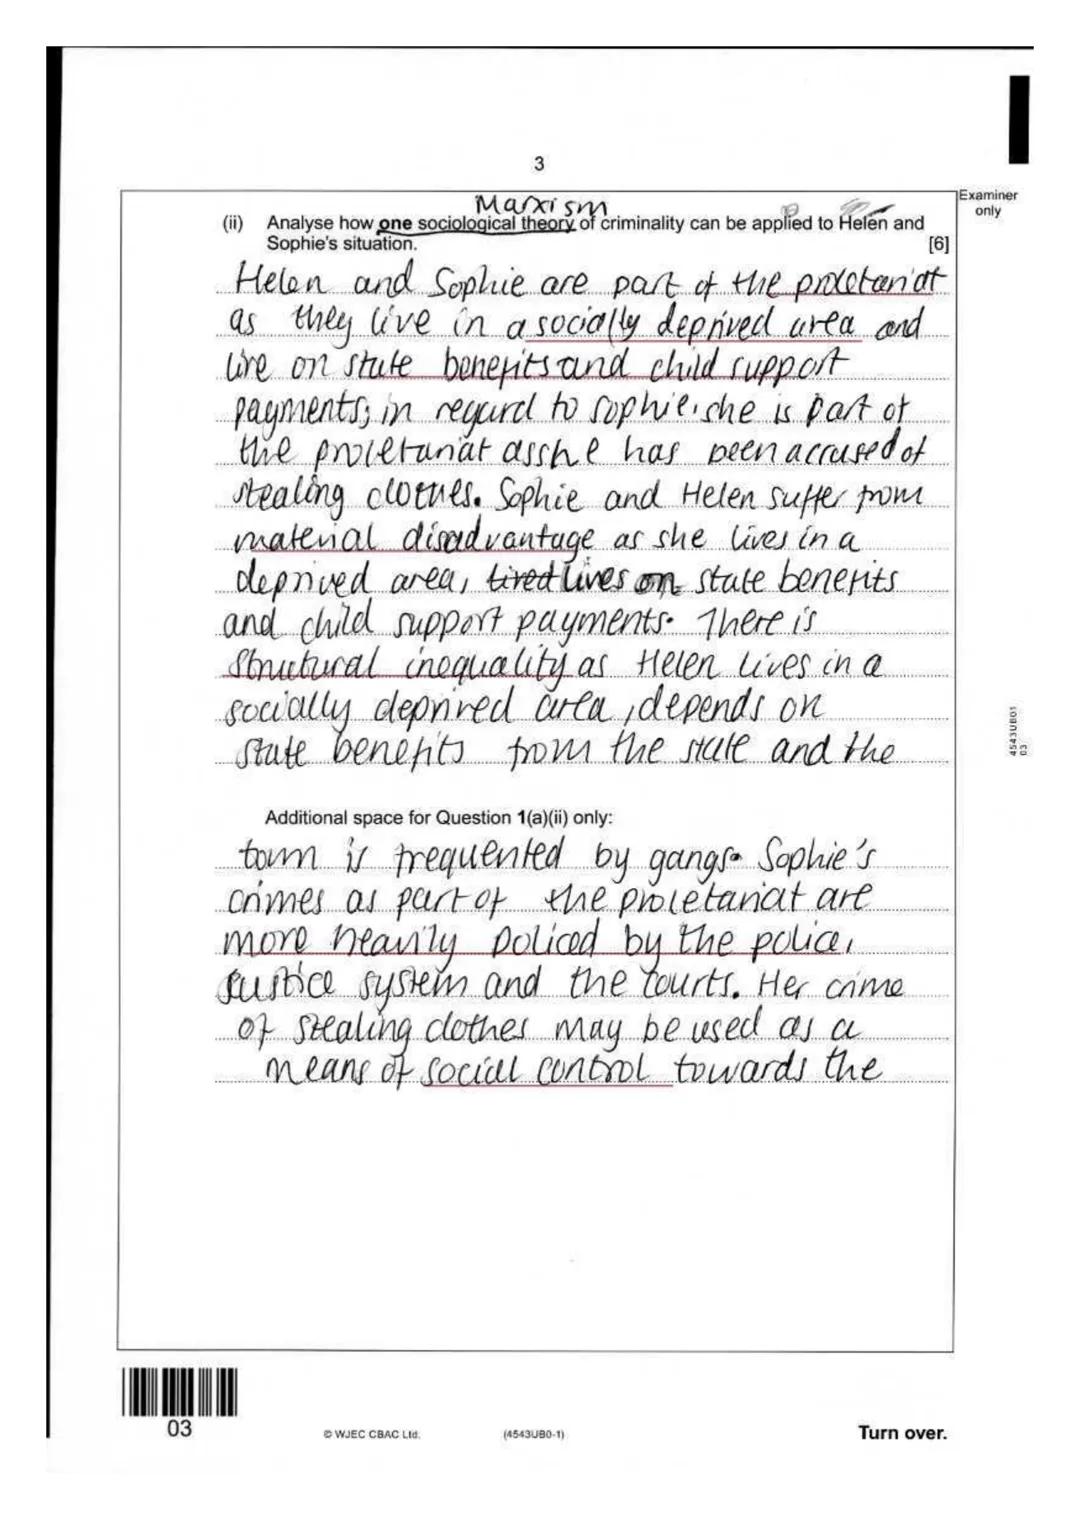 3
Examiner
only
Marxism
(ii) Analyse how one sociological theory of criminality can be applied to Helen and
Sophie's situation. [6]
Helen and Sophie are part of the proletariat
as they live in a socially deprived area and
live on state benefits and child support
payments; in regard to Sophie, she is part of
the proletariat as she has been accused of
stealing clothes. Sophie and Helen suffer from
material disadvantage as she lives in a
deprived area, lives on state benefits
and child support payments. There is
structural inequality as Helen lives in a
socially deprived area, depends on
state benefits from the state and the
Additional space for Question 1(a)(ii) only:
town is frequented by gangs. Sophie's
crimes as part of the proletariat are
more heavily policed by the police,
justice system and the courts. Her crime
of stealing clothes may be used as a
means of social control towards the
4543UB01
03
03
© WJEC CBAC Ltd. (4543UB0-1) Turn over.